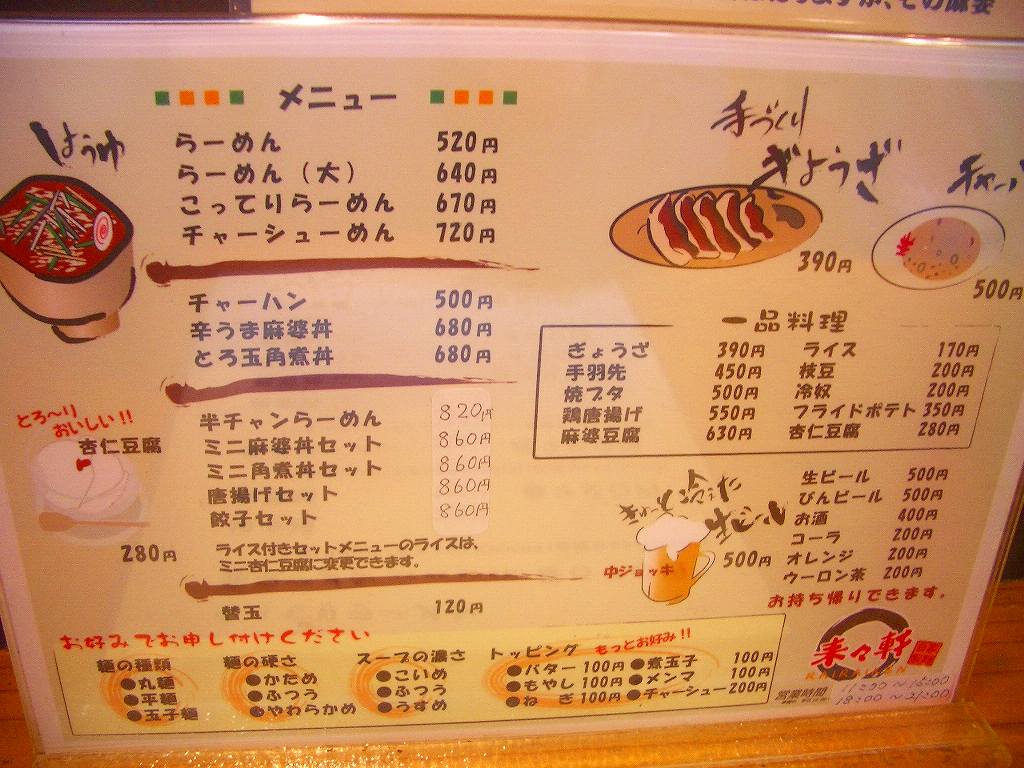 その麻婆
メニュー
しょうゆ
らーめん 520円
らーめん（大） 640円
こってりらーめん 670円
チャーシューめん 720円
チャーハン 500円
辛うま麻婆丼 680円
とろ玉角煮丼 680円
半チャンらーめん 820円
ミニ麻婆丼セット 860円
ミニ角煮丼セット 860円
唐揚げセット 860円
餃子セット 860円
ライス付きセットメニューのライスは、
ミニ杏仁豆腐に変更できます。
替玉 120円
とろ〜り
おいしい!!
杏仁豆腐
280円
手づくり
ぎょうざ
390円
チャー
500円
一品料理
ぎょうざ 390円 ライス 170円
手羽先 450円 枝豆 200円
焼ブタ 500円 冷奴 200円
鶏唐揚げ 550円 フライドポテト 350円
麻婆豆腐 630円 杏仁豆腐 280円
きゅーと冷えた
生ビール
中ジョッキ 500円
生ビール 500円
びんビール 500円
お酒 400円
コーラ 200円
オレンジ 200円
ウーロン茶 200円
お持ち帰りできます。
お好みでお申し付けください
麺の種類
●丸麺
●平麺
●玉子麺
麺の硬さ
●かため
●ふつう
●やわらかめ
スープの濃さ
●こいめ
●ふつう
●うすめ
トッピング もっとお好み!!
●バター 100円 ●煮玉子 100円
●もやし 100円 ●メンマ 100円
●ねぎ 100円 ●チャーシュー 200円
来々軒
営業時間 11:00〜15:00
18:00〜21:00